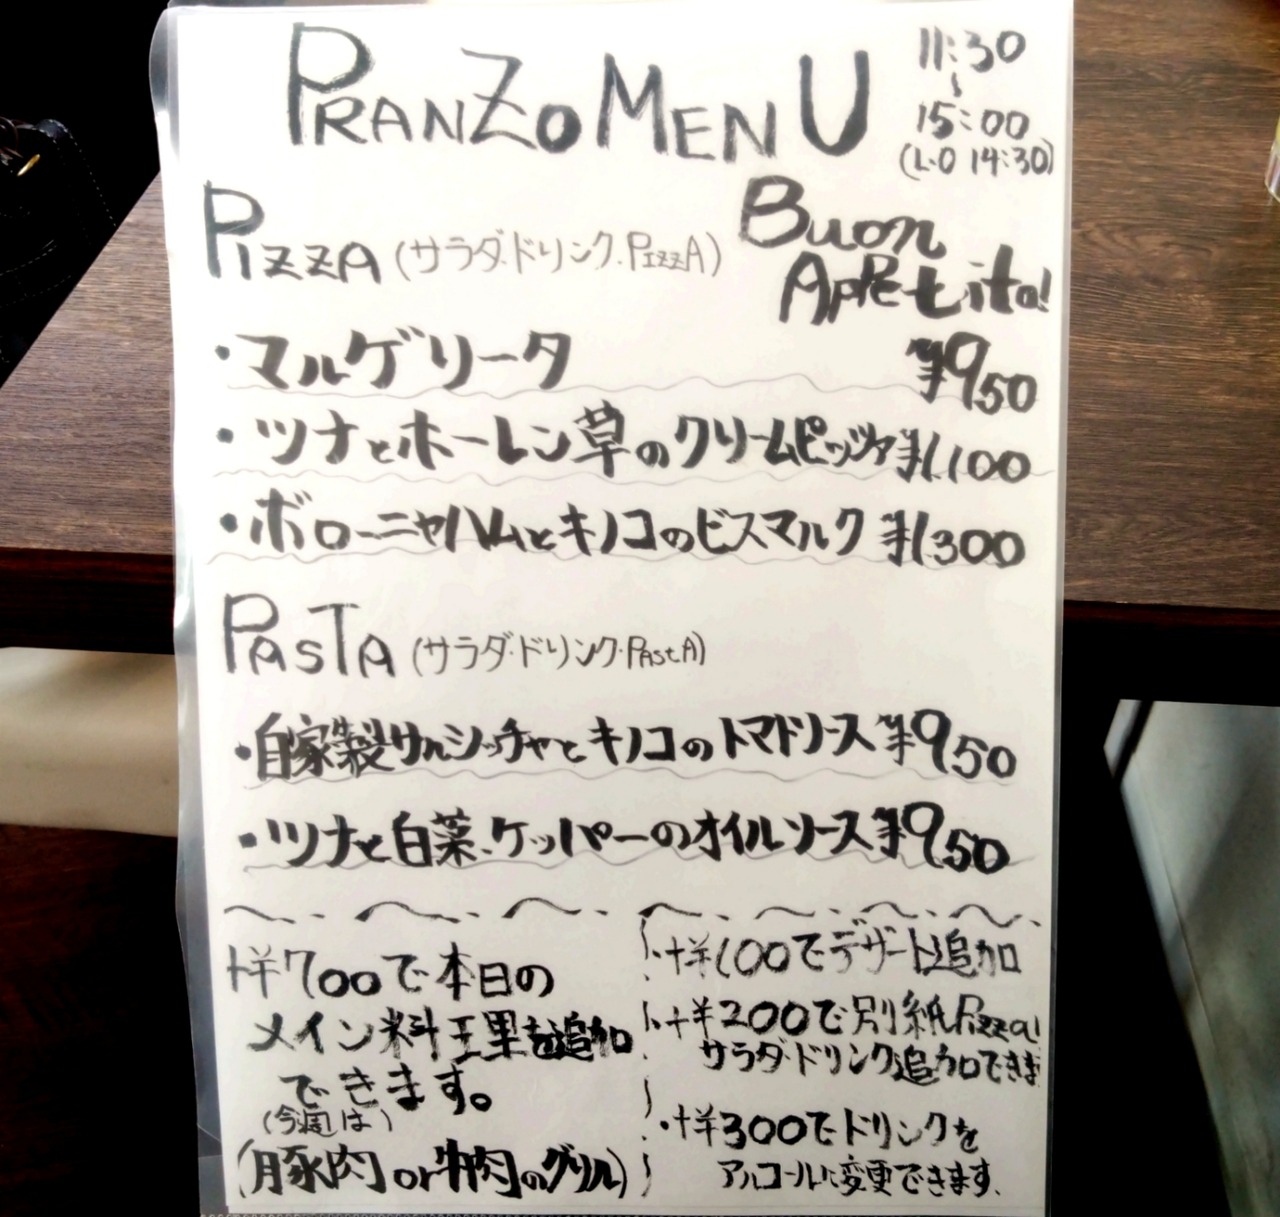 PRANZO MENU
11:30
~
15:00
(L.O 14:30)
PIZZA (サラダ.ドリンク.PIZZA)
Buon
APPetito!
・マルゲリータ ¥950
・ツナとホーレン草のクリームピッツァ ¥1.100
・ボローニャハムとキノコのビスマルク ¥1.300
PASTA (サラダ・ドリンク・PAStA)
・自家製サルシッチャとキノコのトマトソース ¥950
・ツナと白菜、ケッパーのオイルソース ¥950
+¥700で本日の
メイン料理を追加
できます。
(今週は)
(豚肉or牛肉のグリル)
・+¥100でデザート追加
・+¥200で別紙Pizza
サラダ・ドリンク追加できま
・+¥300でドリンクを
アルコールに変更できます.